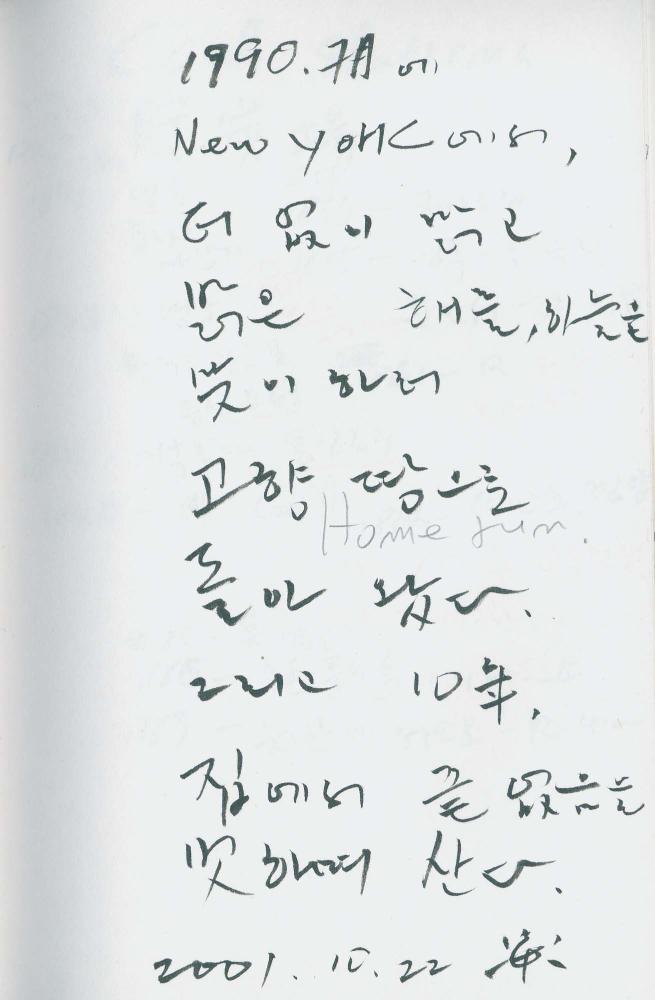 1990.7月에
New York에서,
더 없이 맑고
밝은 해를,하늘을
벗이 하러
고향 땅으로
Home run.
돌아 왔다.
그리고 10年,
집에서 끝 없음을
벗하며 산다.
2001.10.22